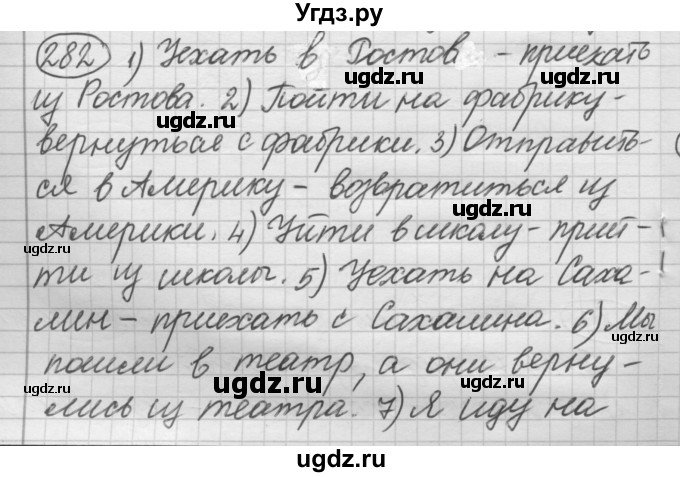 Угдз.ру
282 1) Уехать в Ростов - приехать
из Ростова. 2) Пойти на фабрику -
вернуться с фабрики. 3) Отправить-
ся в Америку - возвратиться из
Америки. 4) Уйти в школу - прий-
ти из школы. 5) Уехать на Саха-
лин - приехать с Сахалина. 6) Мы
пошли в театр, а они верну-
лись из театра. 7) Я иду на
ugdz.ru
ugdz.ru
ugdz.ru
ugdz.ru
ugdz.ru
ugdz.ru
ugdz.ru
ugdz.ru
ugdz.ru
ugdz.ru
ugdz.ru
ugdz.ru
ugdz.ru